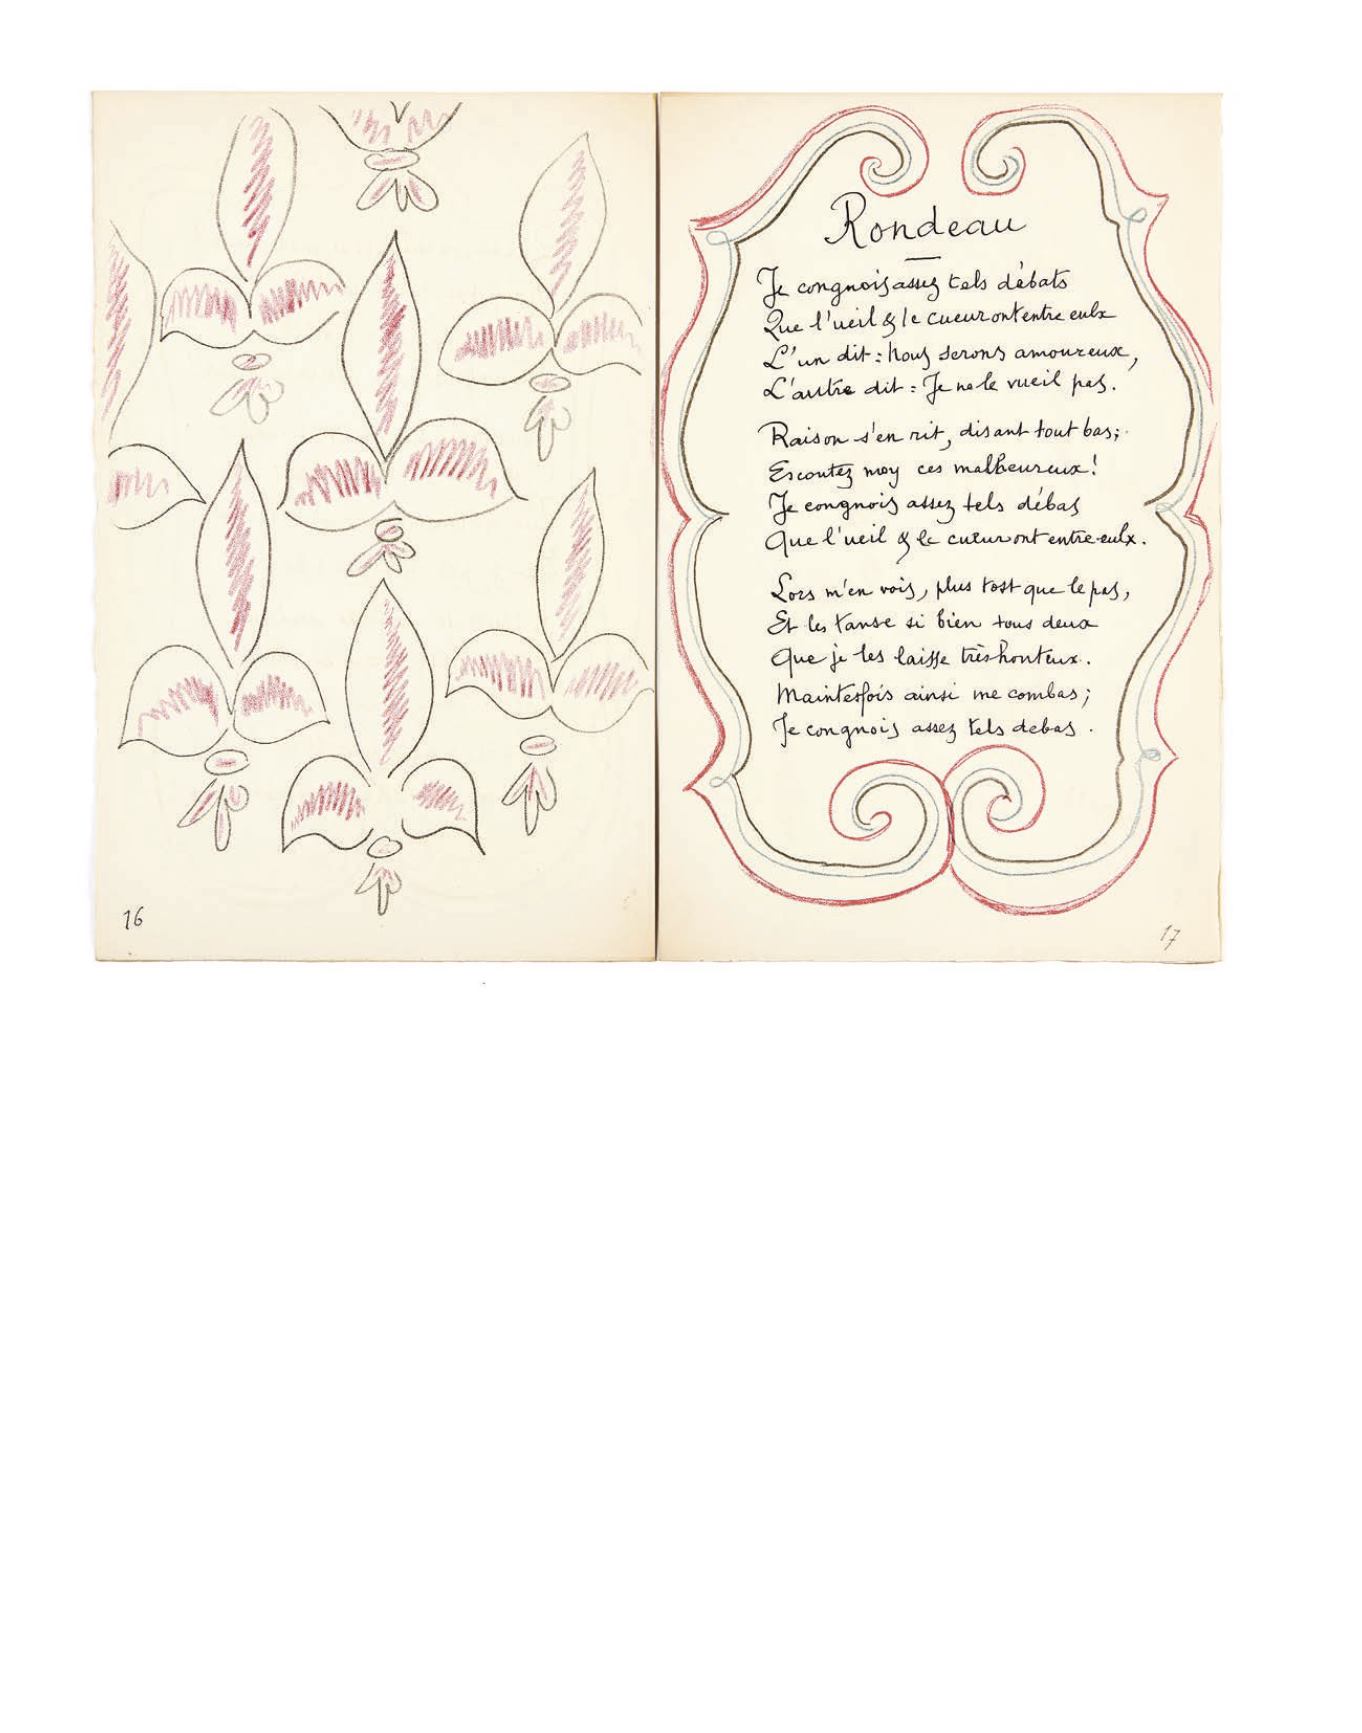 16
Rondeau
Je congnois assez tels débats
Que l'ueil & le cueur ont entre eulx
L'un dit : Nous serons amoureux,
L'autre dit : Je ne le vueil pas.
Raison s'en rit, disant tout bas;
Escoutez moy ces malheureux !
Je congnois assez tels débas
Que l'ueil & le cueur ont entre eulx.
Lors m'en vois, plus tost que le pas,
Et les tanse si bien tous deux
Que je les laisse très honteux.
Maintesfois ainsi me combas;
Je congnois assez tels debas.
17